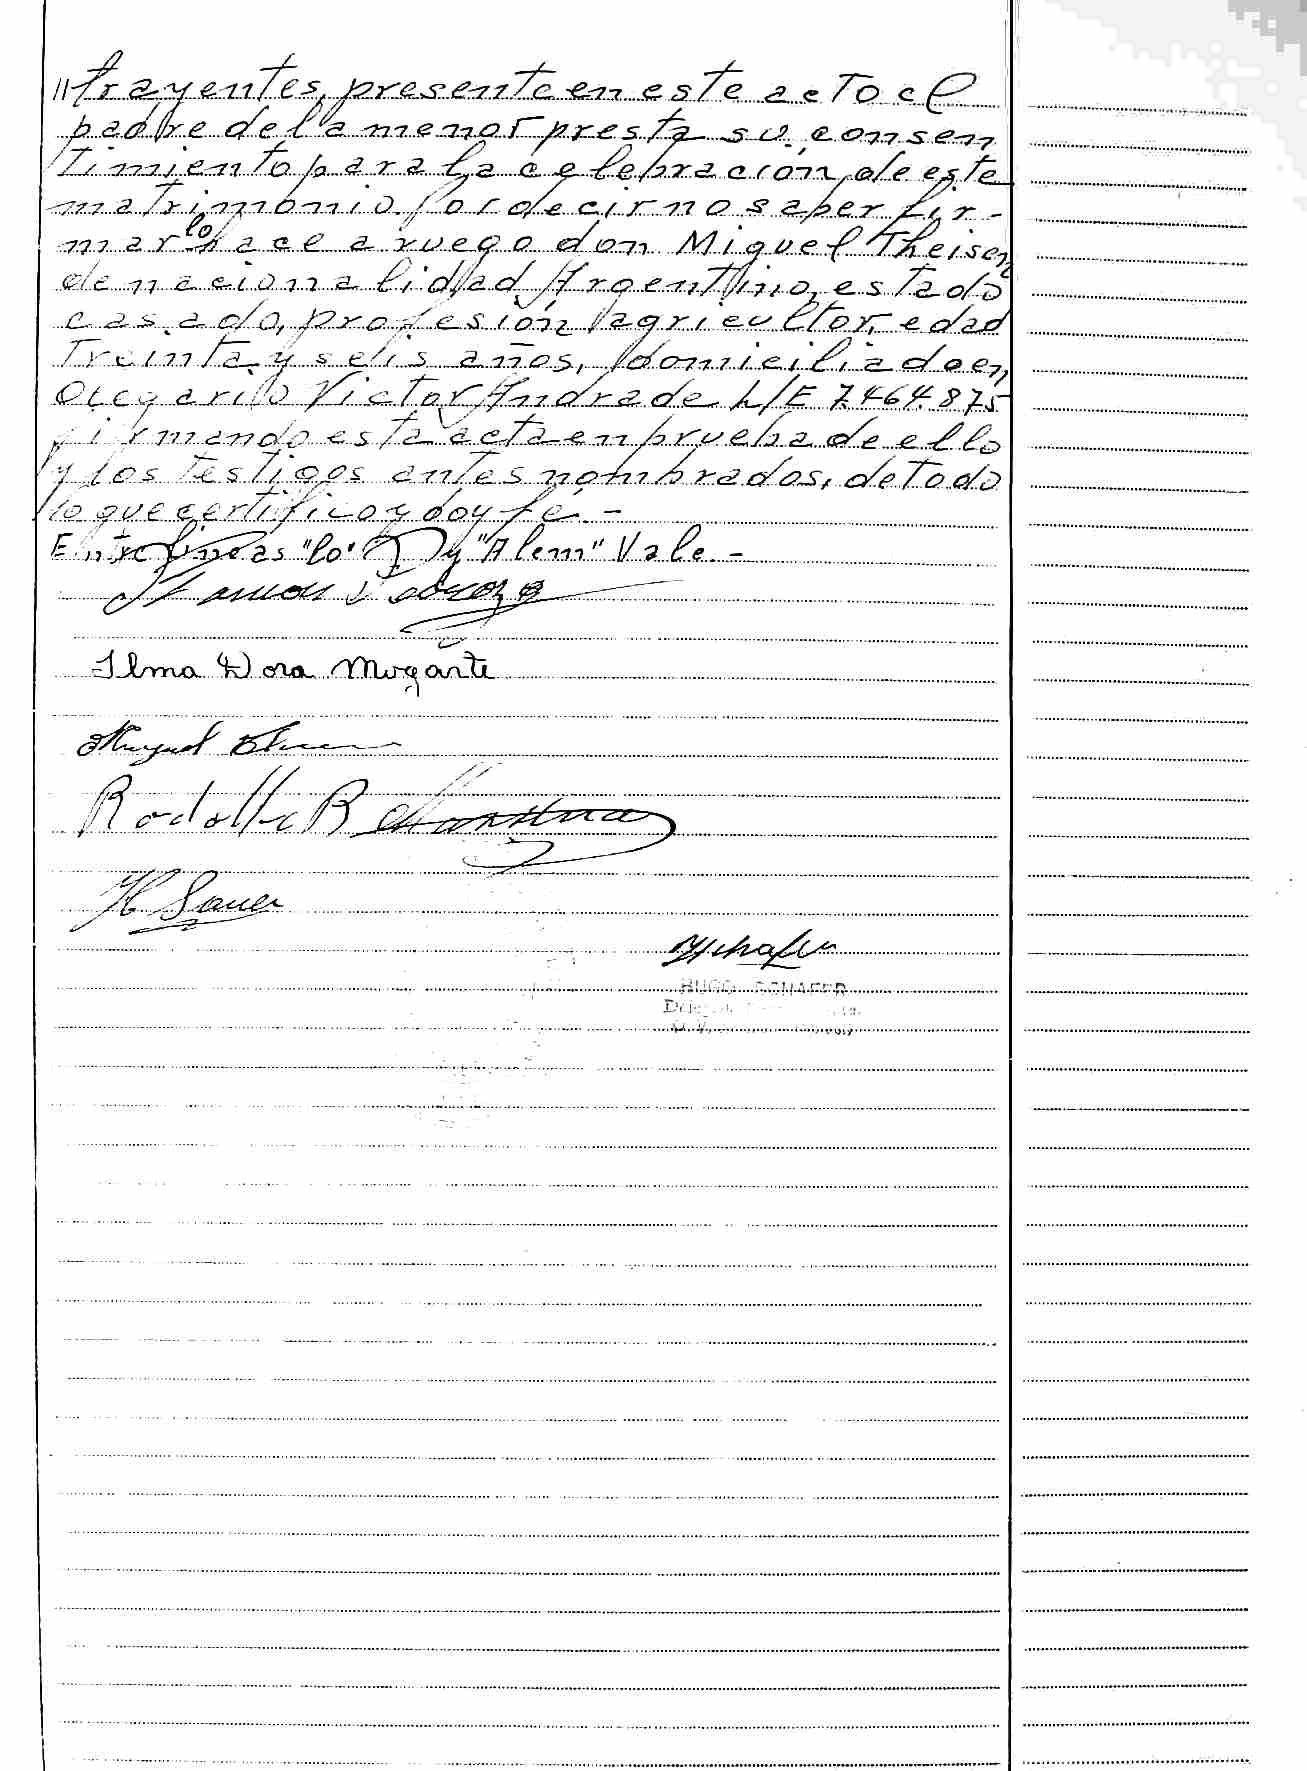 //trayentes, presente en este acto el
padre de la menor presta su consen
timiento para la celebración de este
matrimonio. Por decir no saber fir-
mar lo hace a ruego don Miguel Theisen
de nacionalidad Argentino, estado
casado, profesión agricultor, edad
treinta y seis años, domiciliado en
Olegario Victor Andrade L/E 7.464.875
firmando esta acta en prueba de ello
y los testigos antes nombrados, de todo
lo que certifico y doy fé.-
Entre lineas "lo" y "Alem" Vale.-
Ramon
Ilma Dora Mugarte
Miguel
Rodolfo B
H Sauer
HUGO SCHAFER